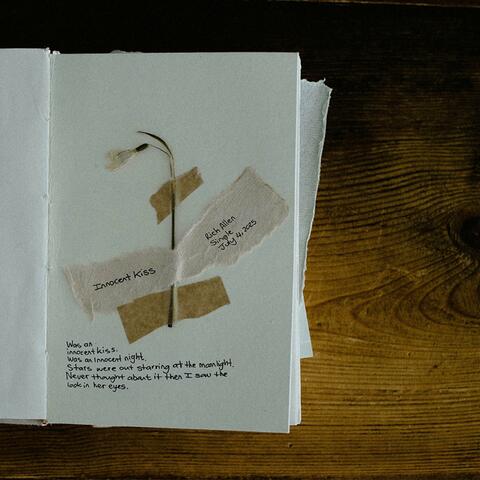 Rich Allen
Simple
July 4, 2025
Innocent Kiss
Was an
innocent kiss.
Was an Innocent night.
Stars were out starring at the moonlight.
Never thought about it then I saw the
look in her eyes.